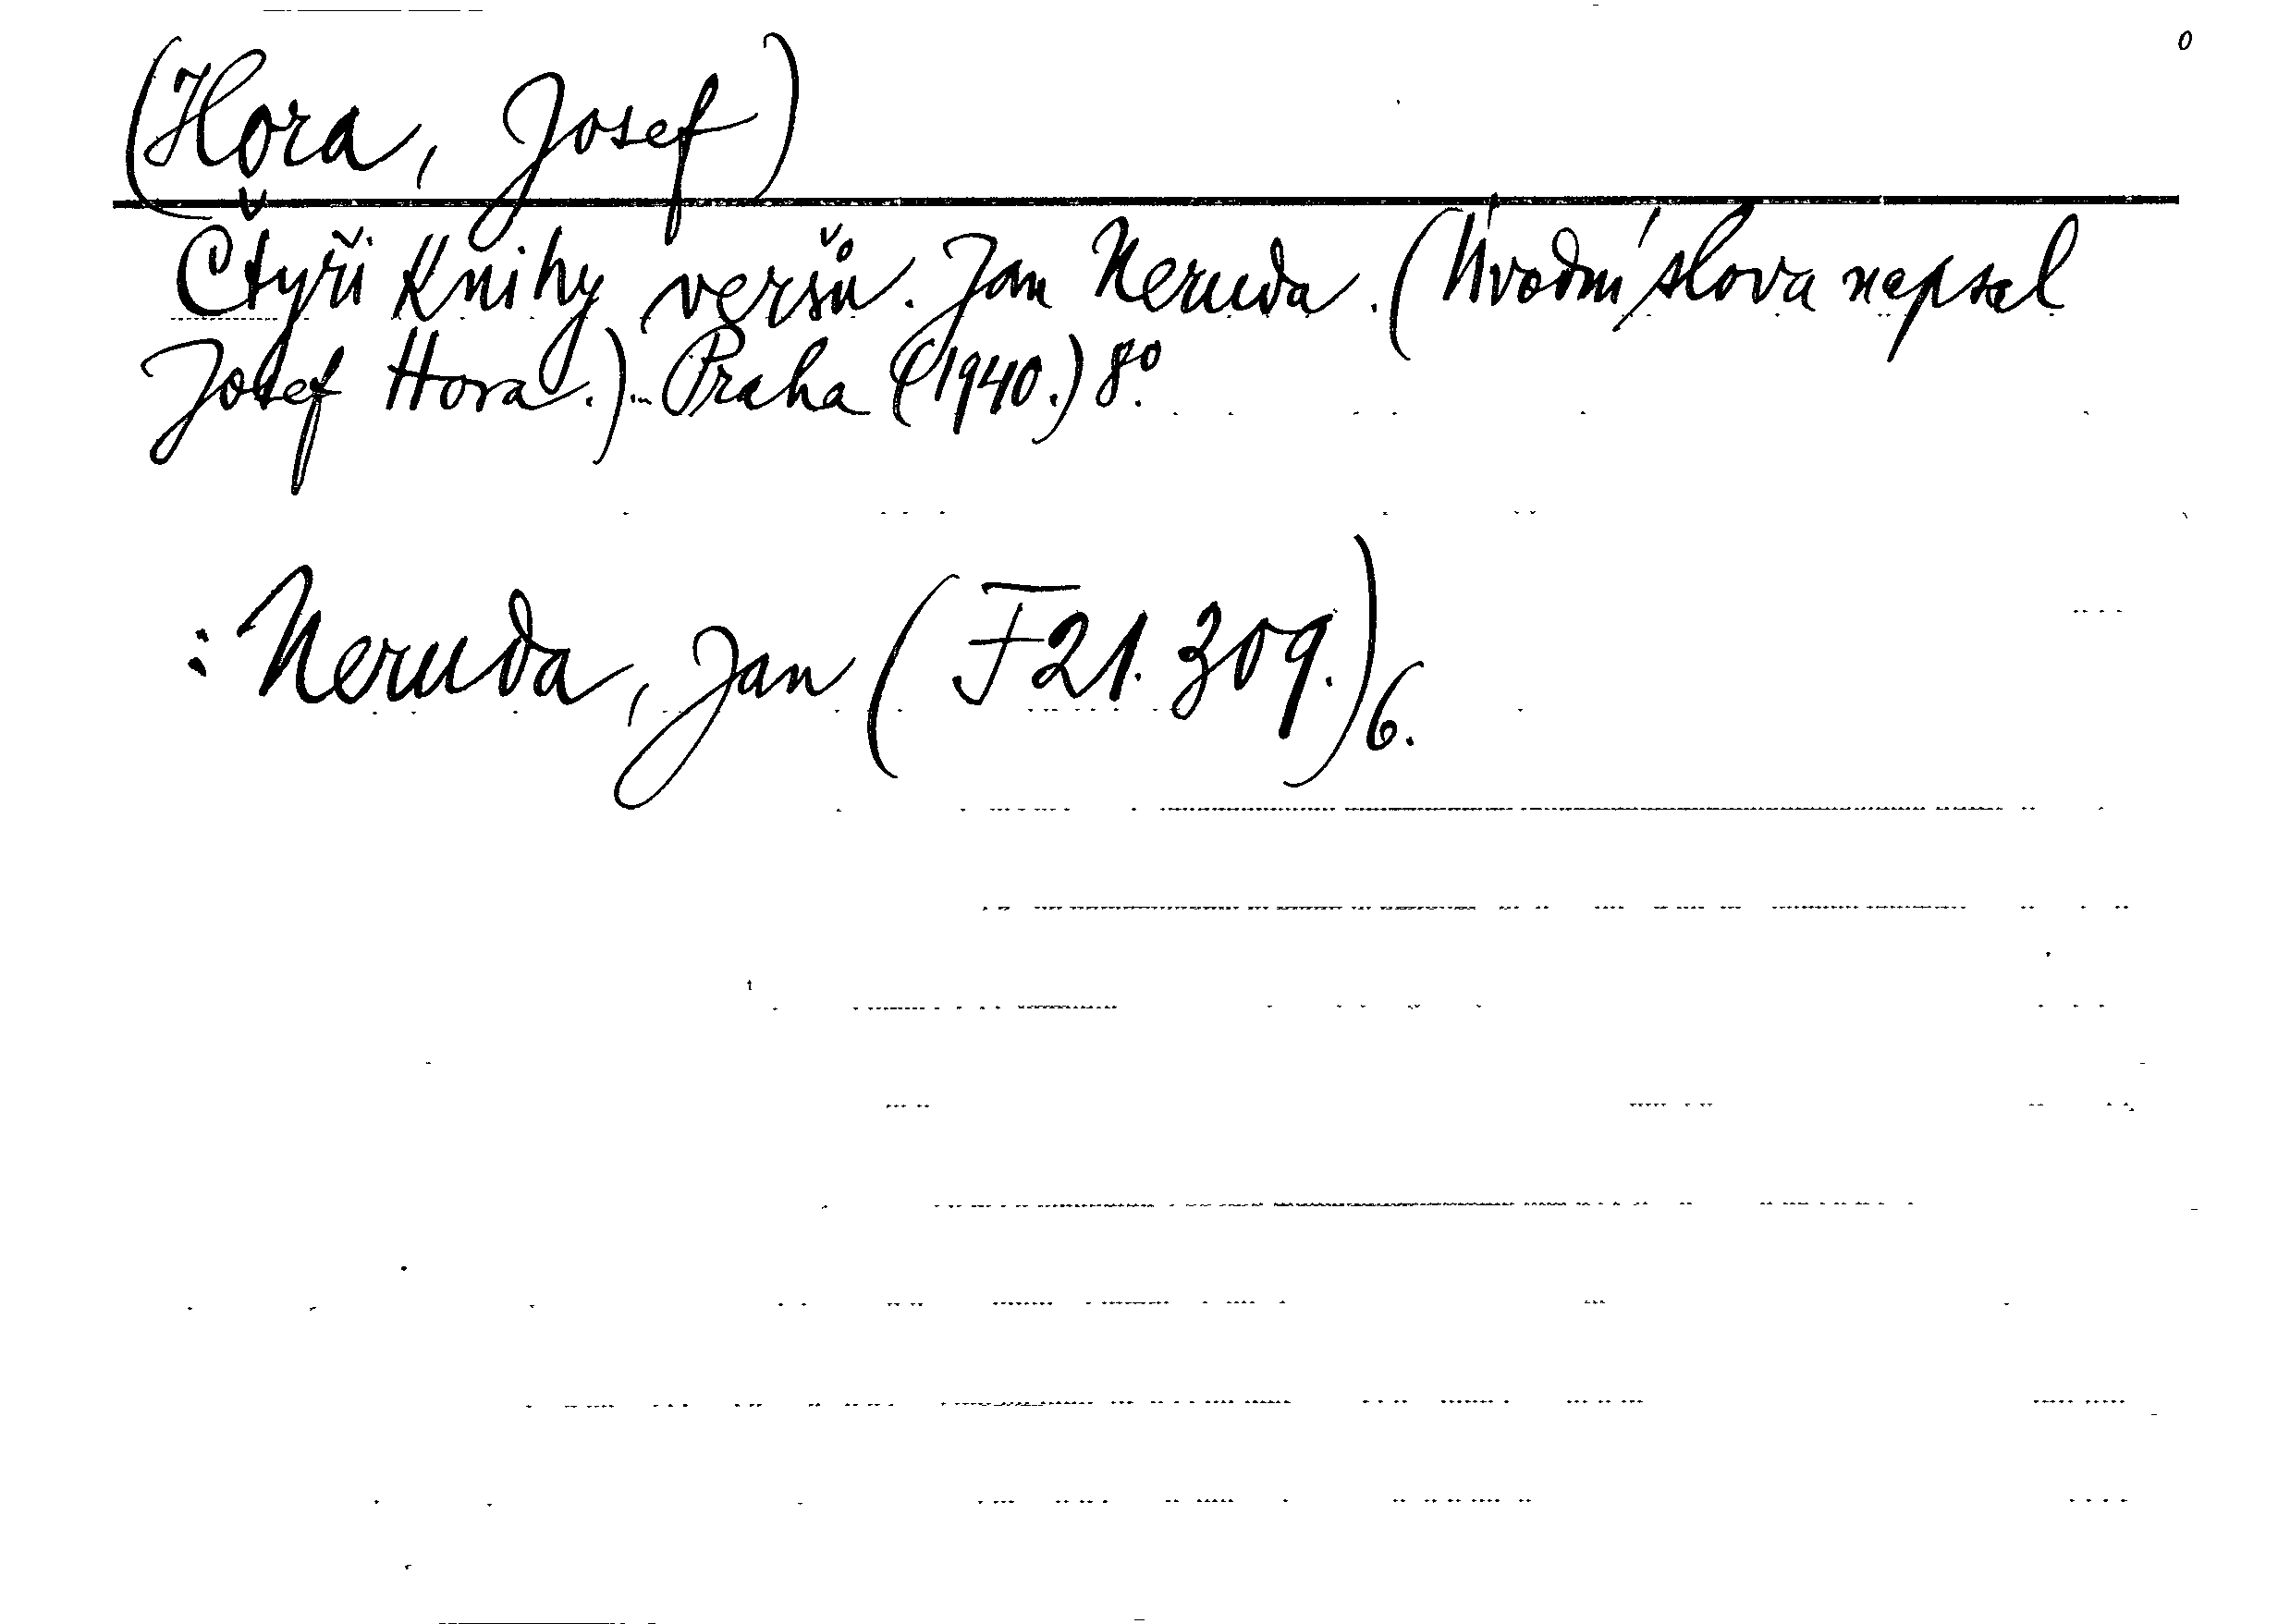 (Hora, Josef)
Čtyři knihy veršů. Jan Neruda. (Úvodní slova napsal
Josef Hora.) Praha (1940.) 8º.
: Neruda, Jan (F 21.309.) 6.